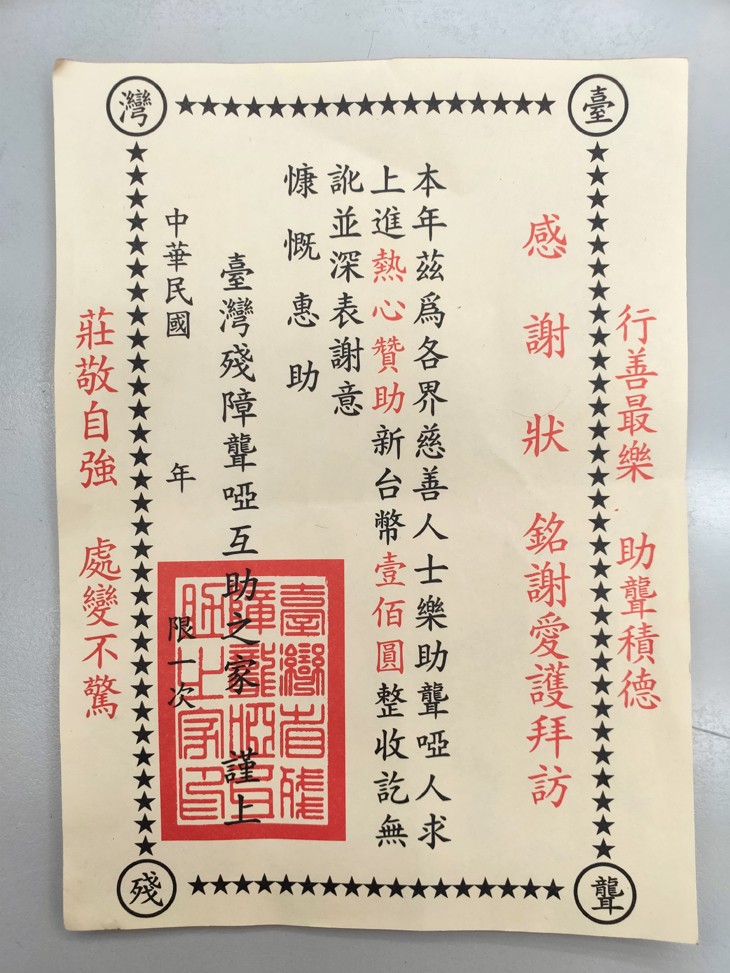 臺
灣
聾
殘
行善最樂 助聾積德
感謝狀 銘謝愛護拜訪
本年茲為各界慈善人士樂助聾啞人求
上進熱心贊助新台幣壹佰圓整收訖無
訛並深表謝意
慷慨惠助
臺灣殘障聾啞互助之家 謹上
中華民國 年 限一次
莊敬自強 處變不驚